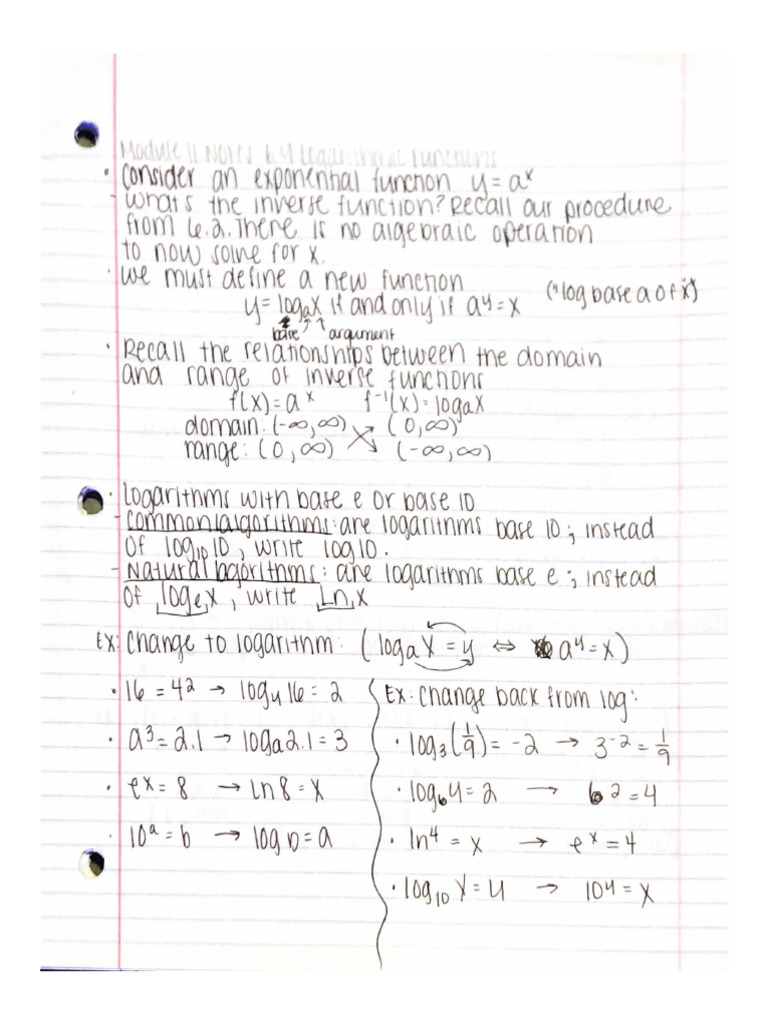 Module 11 Notes 6.4 Logarithmic Functions
• Consider an exponential function y = aˣ
- What's the inverse function? Recall our procedure
from 6.2. There is no algebraic operation
to now solve for x.
• We must define a new function
y = logₐx if and only if aʸ = x ("log base a of x")
base ↑ ↑ argument
• Recall the relationships between the domain
and range of inverse functions
f(x) = aˣ f⁻¹(x) = logₐx
domain: (-∞, ∞) (0, ∞)
range: (0, ∞) (-∞, ∞)
• Logarithms with base e or base 10
- Common lalgorithms: are logarithms base 10; instead
of log₁₀10, write log10.
- Natural lagorithms: are logarithms base e; instead
of logₑx, write Lnx
Ex: Change to logarithm: (logₐx = y ⇔ aʸ = x)
• 16 = 4² → log₄16 = 2
• a³ = 2.1 → logₐ2.1 = 3
• eˣ = 8 → Ln 8 = x
• 10ᵃ = b → log b = a
Ex: Change back from log:
• log₃(1/9) = -2 → 3⁻² = 1/9
• log_b 4 = 2 → b² = 4
• ln⁴ = x → eˣ = 4
• log₁₀ x = 4 → 10⁴ = x